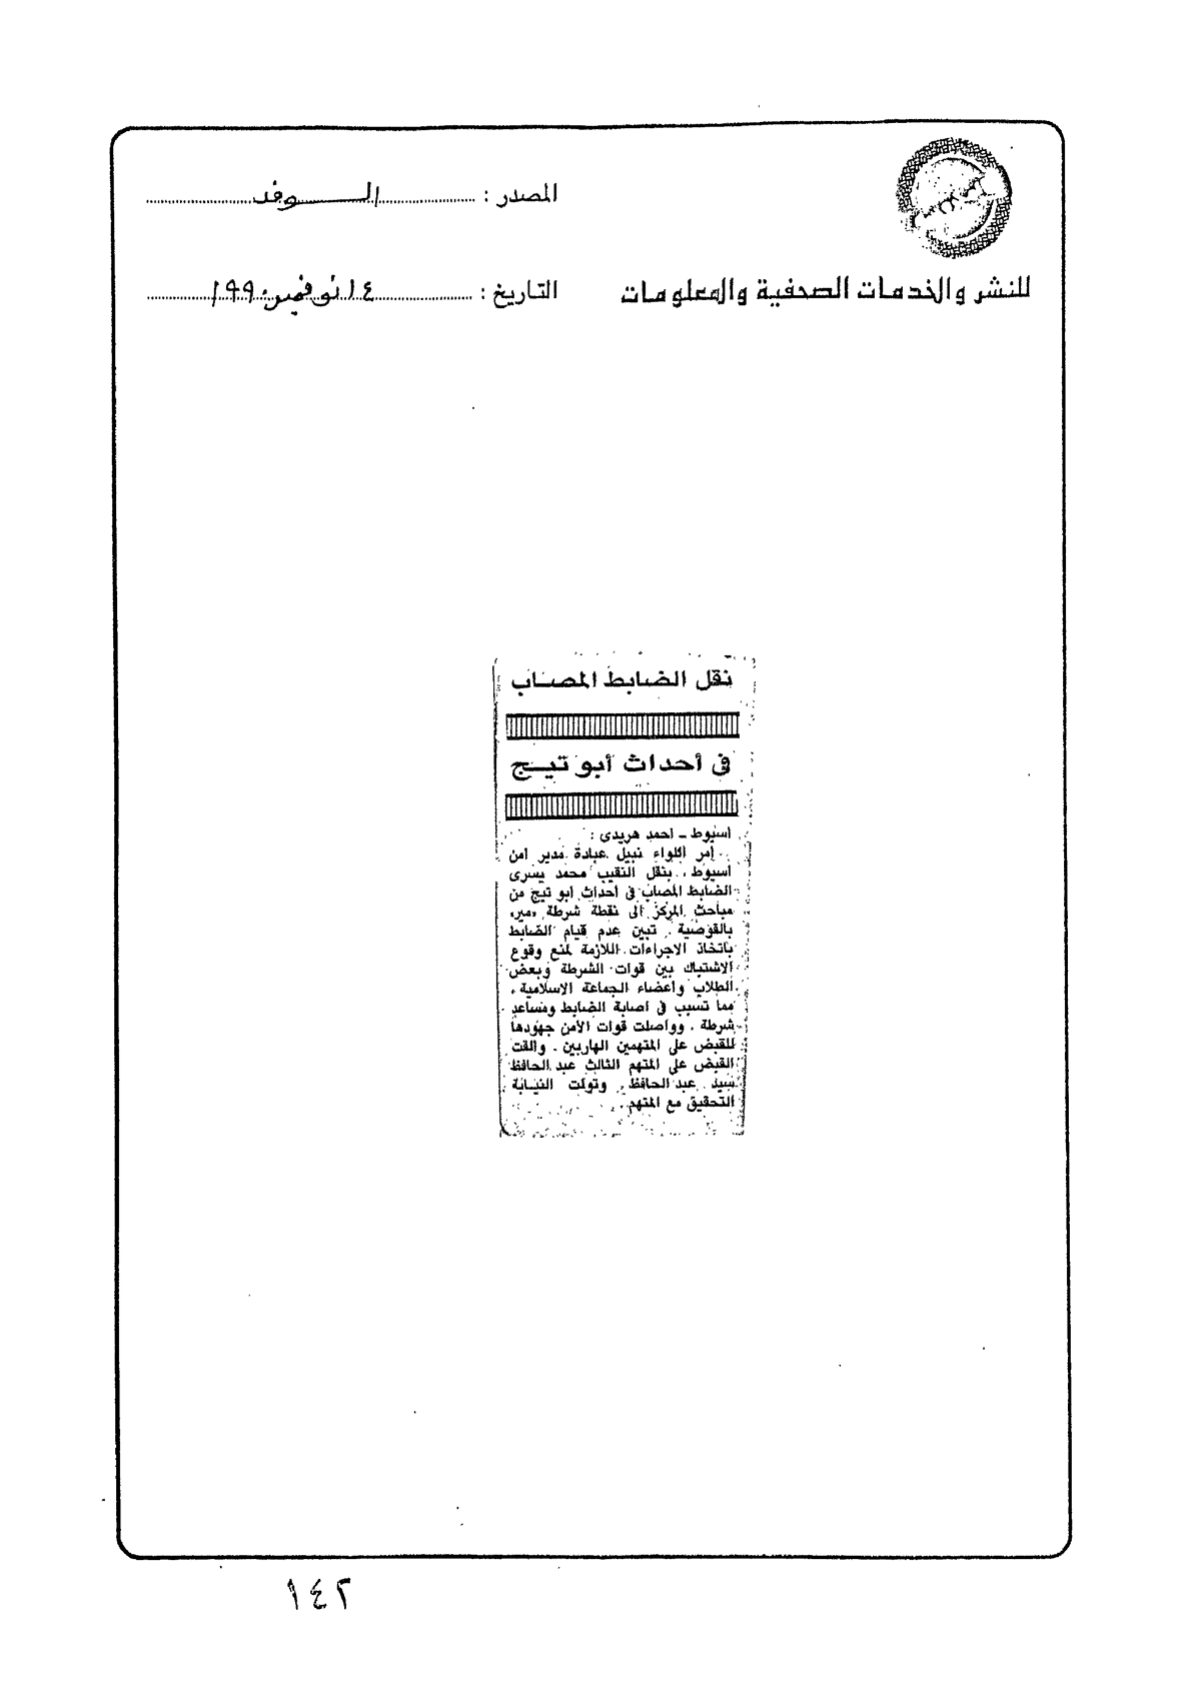 المصدر : الـــوفد
للنشر والخدمات الصحفية والمعلومات
التاريخ : ١٤ نوفمبر ١٩٩٠
نقل الضابط المصاب
فى أحداث أبو تيج
اسيوط ـ احمد هريدى :
أمر اللواء نبيل عبادة مدير امن
اسيوط ، بنقل النقيب محمد يسرى
الضابط المصاب فى احداث ابو تيج من
مباحث المركز الى نقطة شرطة «مير»
بالقوصية . تبين عدم قيام الضابط
باتخاذ الاجراءات اللازمة لمنع وقوع
الاشتباك بين قوات الشرطة وبعض
الطلاب واعضاء الجماعة الاسلامية ،
مما تسبب فى اصابة الضابط ومساعد
شرطة . وواصلت قوات الأمن جهودها
للقبض على المتهمين الهاربين . والقت
القبض على المتهم الثالث عبد الحافظ
سيد عبد الحافظ . وتولت النيابة
التحقيق مع المتهم .
١٤٢